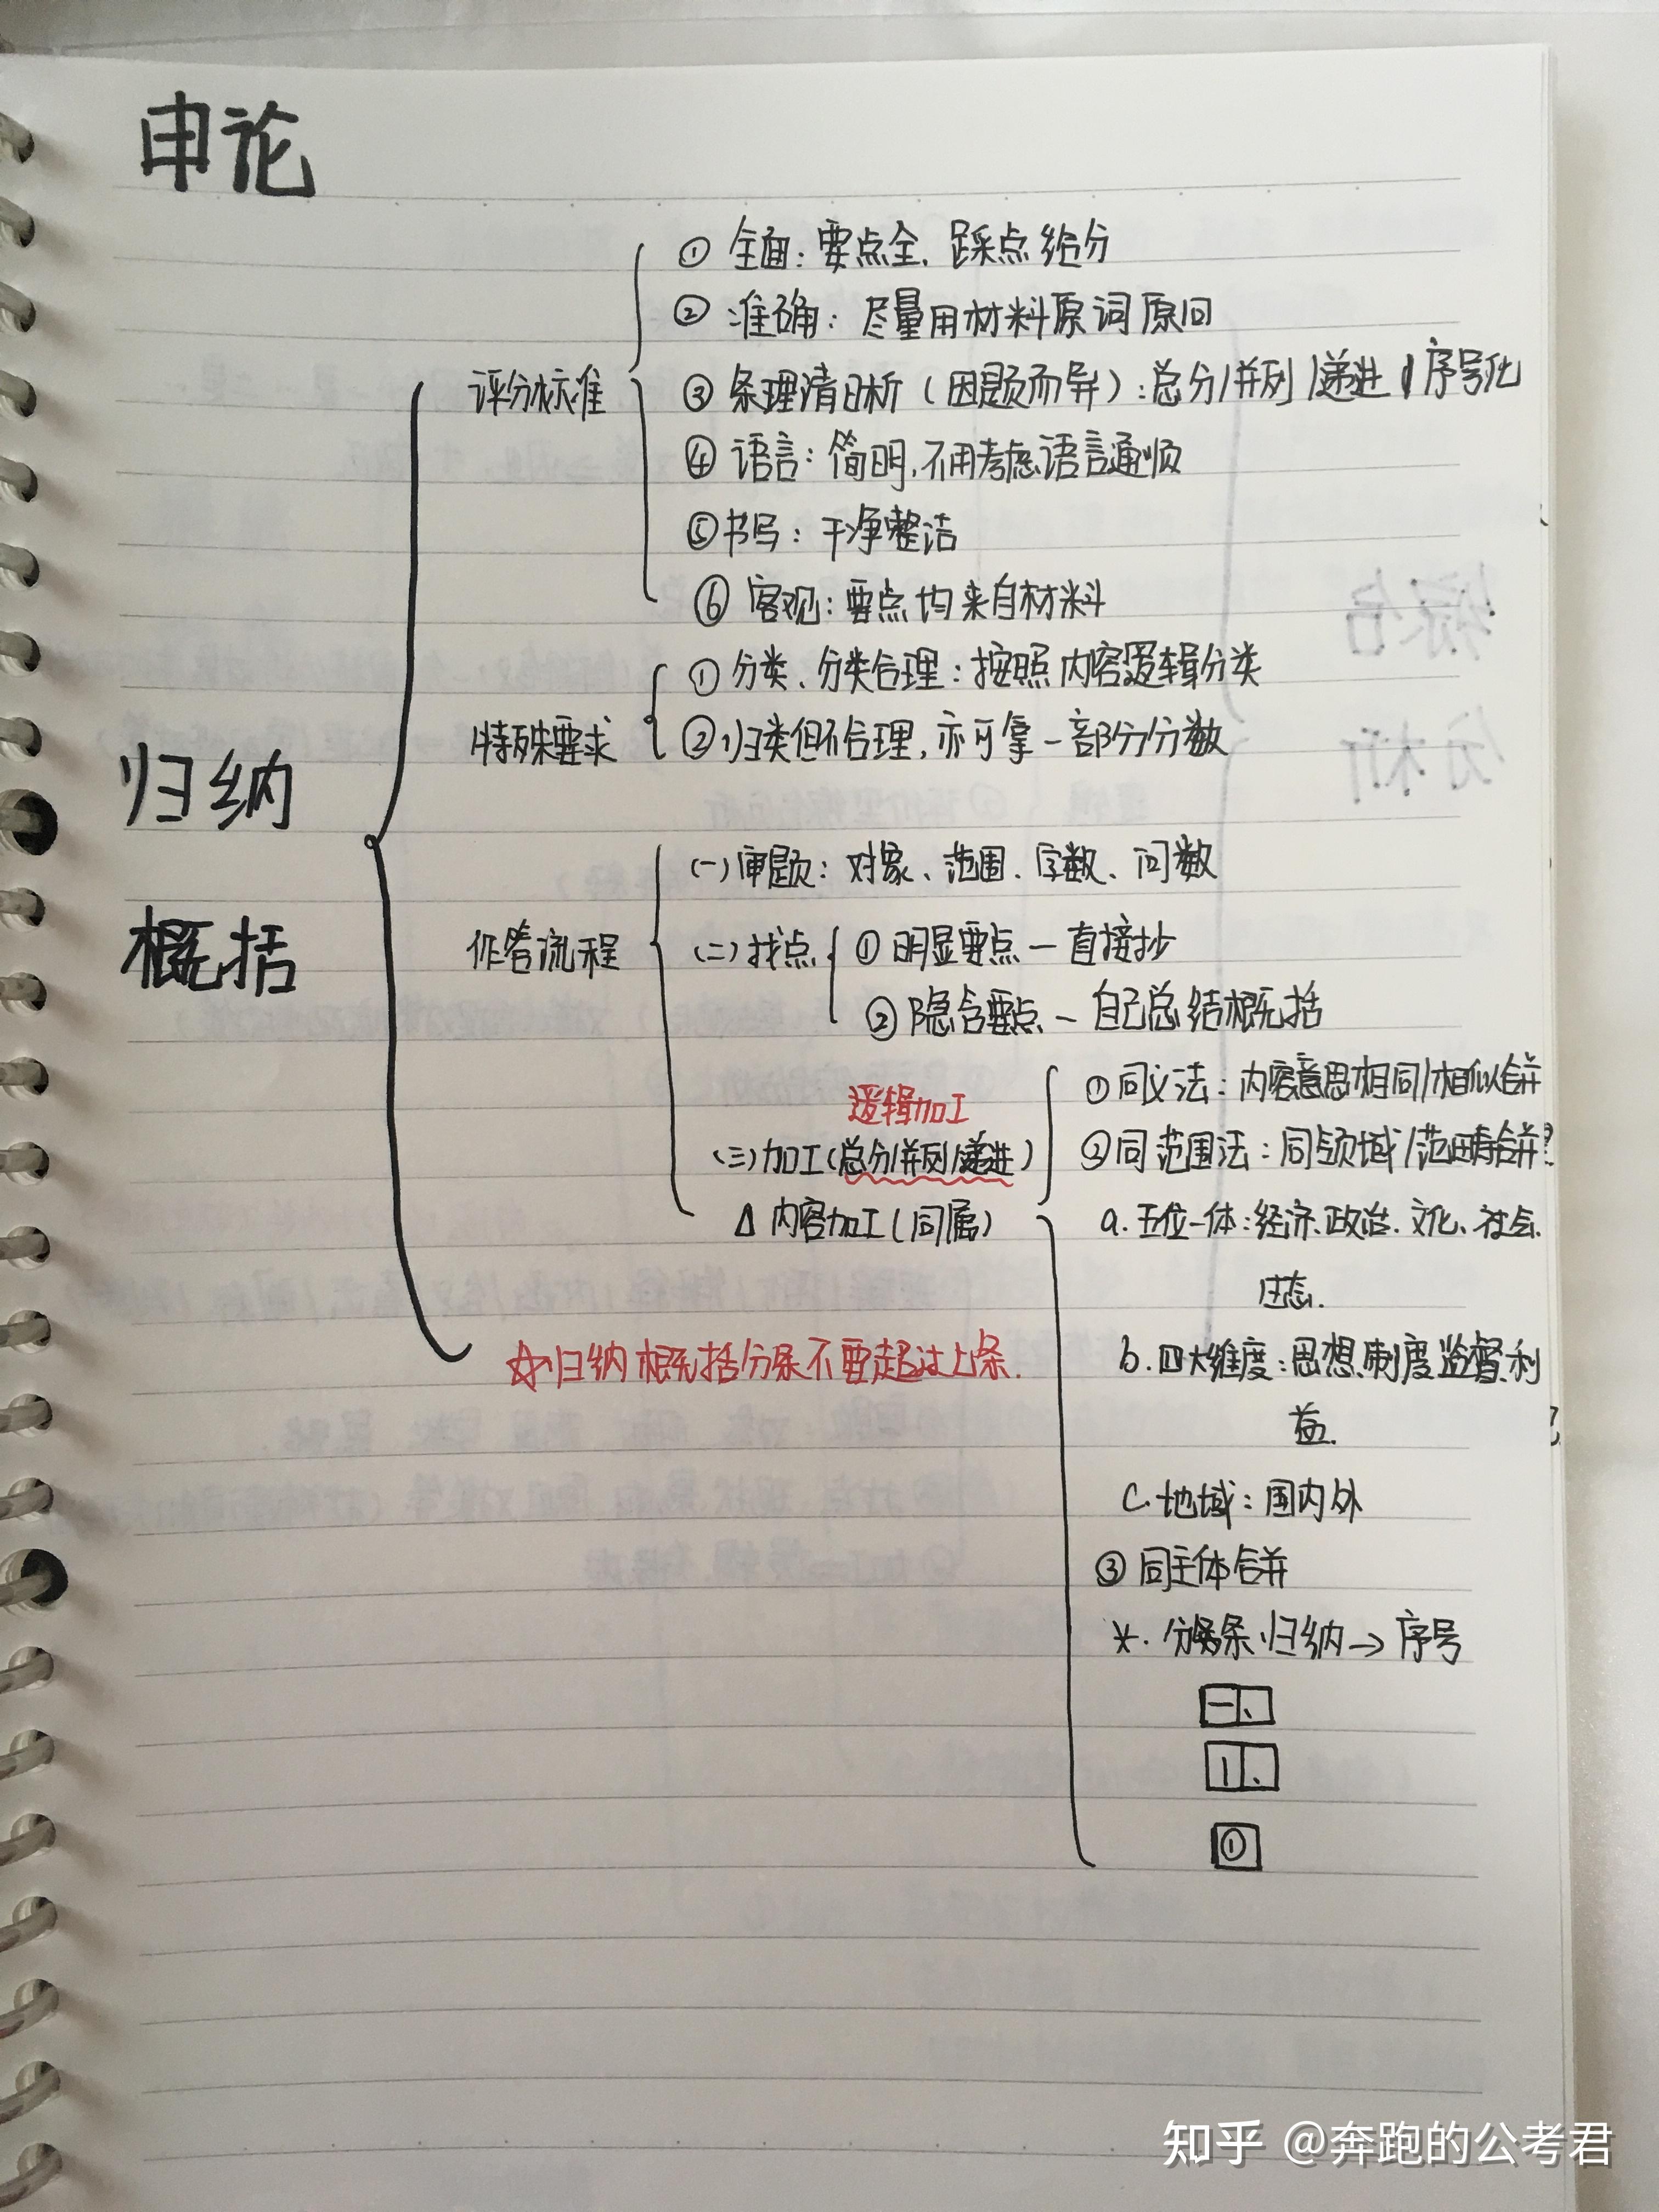 申论
① 全面：要点全、踩点给分
② 准确：尽量用材料原词原句
评分标准
③ 条理清晰（因题而异）：总分/并列/递进 序号化
④ 语言：简明,不用考虑语言通顺
⑤书写：干净整洁
⑥ 客观：要点均来自材料
特殊要求
① 分类、分类合理：按照内容逻辑分类
②归类但不合理,亦可拿一部分分数
归纳
概括
作答流程
(一)审题：对象、范围、字数、问数
(二)找点 ① 明显要点 — 直接抄
② 隐含要点 — 自己总结概括
逻辑加工
(三)加工(总分/并列/递进)
△ 内容加工(同属)
①同义法：内容意思相同/相似合并
②同范围法：同领域/范畴合并
a. 五位一体：经济、政治、文化、社会、
生态.
☆归纳概括分条不要超过七条.
b. 四大维度：思想、制度、监督、利
益.
C. 地域：国内外
③ 同主体合并
*. 分条归纳→序号
一、
1、
①
知乎 @奔跑的公考君